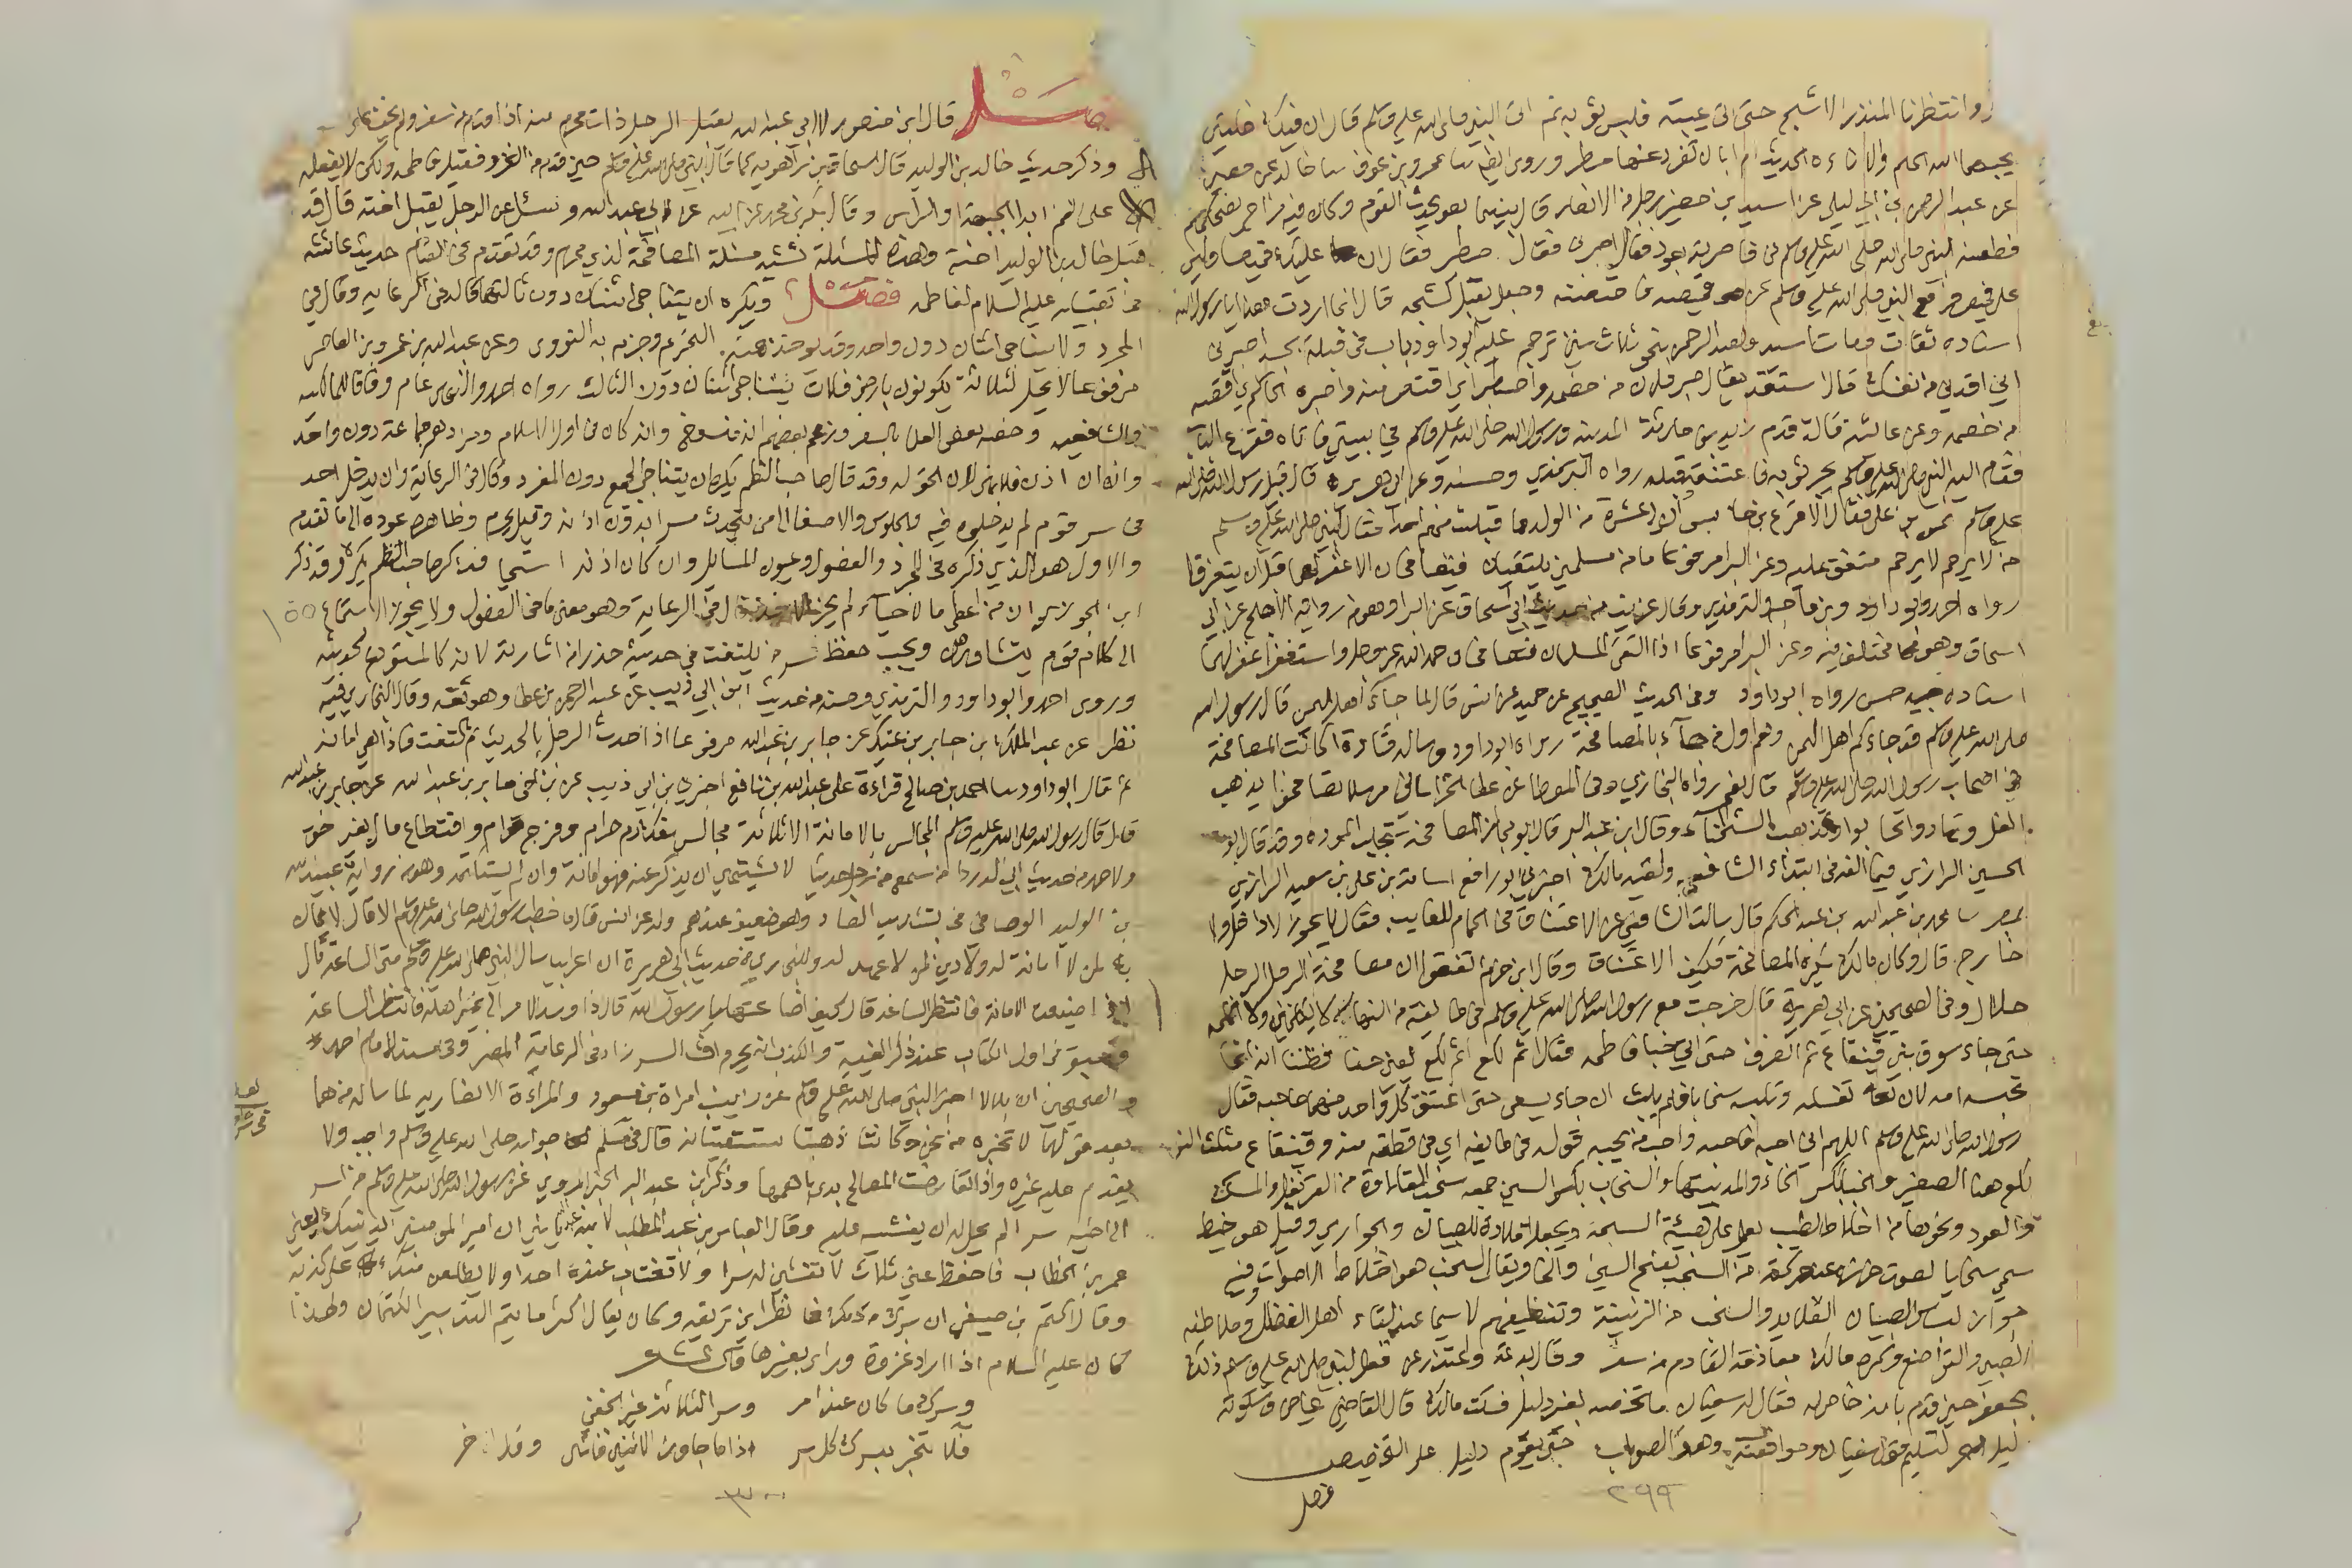 وانتظرنا المنذر الاشج حتى اتى عيبته فلبس ثوبيه ثم اتى النبي صلى الله عليه وسلم فقال ان فيك خلتين
يحبهما الله الحلم والاناءة الحديث ام ابان تفرد عنها مطر وروى ايضا ثنا عمرو بن عوف ثنا خالد عن حصين
عن عبد الرحمن بن ابي ليلى عن اسيد بن حضير رجل من الانصار قال بينما هو يحدث القوم وكان فيه مزاح يضحكهم
فطعنه النبي صلى الله عليه وسلم في خاصرته بعود فقال اصبرني فقال اصطبر فقال ان عليك قميصا وليس
علي قميص فرفع النبي صلى الله عليه وسلم عن قميصه فاحتضنه وجعل يقبل كشحه قال انما اردت هذا يا رسول الله
اسناده ثقات ومات اسيد ولعبد الرحمن نحو ثلاث سنين ترجم عليه ابو داود باب في قبلة الجسد اصبرني
اي اقدني من نفسك قال استقد يقال اصبر فلان من خصمه واصطبر اي اقتص منه واصبره الحاكم اي اقصه
من خصمه وعن عائشة قالت قدم زيد بن حارثة المدينة ورسول الله صلى الله عليه وسلم في بيتي فاتاه فقرع الباب
فقام اليه النبي صلى الله عليه وسلم يجر ثوبه فاعتنقه وقبله رواه الترمذي وحسنه وعن ابي هريرة قال قبل رسول الله صلى الله
عليه وسلم الحسن بن علي فقال الاقرع بن حابس ان لي عشرة من الولد ما قبلت منهم احدا فقال النبي صلى الله عليه وسلم
من لا يرحم لا يرحم متفق عليه وعن البرا مرفوعا ما من مسلمين يلتقيان فيتصافحان الا غفر لهما قبل ان يتفرقا
رواه احمد وابو داود وابن ماجه والترمذي وقال غريب من حديث ابي اسحاق عن البرا وهو من رواية الاجلح عن ابي
اسحاق وهو مختلف فيه وعن البرا مرفوعا اذا التقى المسلمان فتصافحان وحمدا الله عز وجل واستغفرا غفر لهما
اسناده حسن رواه ابو داود وفي الحديث الصحيح عن حميد عن انس قال لما جاءكم اهل اليمن قال رسول الله
صلى الله عليه وسلم قد جاءكم اهل اليمن وهم اول من جاء بالمصافحة رواه ابو داود وساله قتادة اكانت المصافحة
في اصحاب رسول الله صلى الله عليه وسلم قال نعم رواه البخاري وفي الموطا عن عطا الخراساني مرسلا تصافحوا يذهب
الغل وتهادوا تحابوا وتذهب الشحناء وقال ابن عبد البر قال ابو مجلز المصافحة تجلب الموده وقد قال ابو
الحسين الرازي فيما الفه في ابتداء الشافعي ولقيه مالك اخبرني ابو رافع اسامة بن علي بن سعيد الرازي
بمصر ثنا محمد بن عبد الله بن عبد الحكم قال سالت الشافعي عن الاعتناق في الحمام للغايب فقال لا يجوز لا داخل ولا
خارج قال وكان مالك يكره المصافحة فكيف الاعتناق وقال ابن حزم اتفقوا ان مصافحة الرجل الرجل
حلال وفي الصحيحين عن ابي هريرة قال خرجت مع رسول الله صلى الله عليه وسلم في طائفة من النهار لا يكلمني ولا اكلمه
حتى جاء سوق بني قينقاع ثم انصرف حتى اتى خبا فاطمه فقال اثم لكع اثم لكع يعني حسنا فظننا انه انما
تحبسه امه لان تغسله وتلبسه سخابا فلم يلبث ان جاء يسعى حتى اعتنق كل واحد منهما صاحبه فقال
رسول الله صلى الله عليه وسلم اللهم اني احبه فاحبه واحب من يحبه قوله في طايفة اي في قطعة منه وقينقاع مثلث النون
لكع هنا الصغير والخبا بكسر الخاء والمد بيتها والسخاب بكسر السين جمعه سخب القلادة من القرنفل والمسك
والعود ونحوها من اخلاط الطيب يعمل على هيئة السبحة ويجعل قلادة للصبيان والجواري وقيل هو خيط
سمي سخابا لصوت خرزه عند حركته من السخب بفتح السين والخا ويقال الصخب هو اختلاط الاصوات وفيه
جواز لباس الصبيان القلايد والسخب من الزينة وتنظيفهم لا سيما عند لقاء اهل الفضل وملاطفة
الصبي والتواضع وكره مالك معانقة القادم من سفر وقال بدعة واعتذر عن فعل النبي صلى الله عليه وسلم ذلك
بجعفر حين قدم بانه خاص له فقال له سفيان ما تخصه بغير دليل فسكت مالك قال القاضي عياض وسكوته
دليل لتسليم قول سفيان وموافقته وهو الصواب حتى يقوم دليل على التخصيص
فصل
٢٩٩
فصل قال ابن منصور لابي عبد الله يقبل الرجل ذات محرم منه اذا قدم من سفر ولم يخف على
وذكر حديث خالد بن الوليد قال اسحاق بن راهويه كما قال النبي صلى الله عليه وسلم حين قدم من الغزو فقبل فاطمه ولكن لا يفعله
على الفم ابدا الجبهة او الراس وقال بكر بن محمد عن ابيه عن ابي عبد الله وسئل عن الرجل يقبل اخته قال قد
قبل خالد بن الوليد اخته وهذه المسئلة تشبه مسئلة المصافحة لذي محرم وقد تقدم في القيام حديث عائشة
في تقبيله عليه السلام لفاطمه فصل ويكره ان يتناجى اثنان دون ثالثهما قاله في الرعايه وقال في
المجرد ولا يتناجى اثنان دون واحد وقد يوخذ منه التحريم وجزم به النووي وعن عبد الله بن عمرو بن العاص
مرفوعا لا يحل لثلاثة يكونون بارض فلاة يتناجى اثنان دون الثالث رواه احمد والنهي عام وفاقا للمالكيه
والشافعيه وخصه بعض العلما بالسفر وزعم بعضهم انه منسوخ وانه كان في اول الاسلام ومراد هم جماعة دون واحد
وانه ان اذن فلا نهي لان الحق له وقد قال صاحب النظم يكره ان يتناجى الجمع دون المفرد وقال في الرعاية وان يدخل احد
في سر قوم لم يدخلوه فيه والجلوس والاصغا الى من يتحدث سرا بدون اذنه وقيل يحرم وظاهره عوده الى ما تقدم
والاول هو الذي ذكره في المجرد والفصول وعيون المسائل وان كان اذنه استحيا فذكر صاحب النظم يكره وقد ذكر
ابن الجوزي ان من اعطي مالا حياء لم يجز له اخذه قال في الرعاية وهو معنى ما في الفصول ولا يجوز الاستماع
الى كلام قوم يتشاورون ويجب حفظ سر من يلتفت في حديثه حذرا من اشاعته لانه كالمستودع لحديثه
وروى احمد وابو داود والترمذي وحسنه من حديث ابن ابي ذيب عن عبد الرحمن بن عطا وهو ثقه وقال البخاري فيه
نظر عن عبد الملك بن جابر بن عتيك عن جابر بن عبد الله مرفوعا اذا حدث الرجل بالحديث ثم التفت فهي امانة
ثم قال ابو داود ثنا احمد بن صالح قراءة على عبد الله بن نافع اخبرني بن ابي ذيب عن بن اخي جابر بن عبد الله عن جابر بن عبد الله
قال قال رسول الله صلى الله عليه وسلم المجالس بالامانة الا ثلاثة مجالس سفك دم حرام وفرج حرام واقتطاع مال بغير حق
ولاحمد من حديث ابي الدردا من سمع من رجل حديثا لا يشتهي ان يذكر عنه فهو امانة وان لم يستكتمه وهو من رواية عبيد الله
بن الوليد الوصافي بتشديد الصاد وهو ضعيف عندهم وله عن انس قال ما خطبنا رسول الله صلى الله عليه وسلم الا قال لا ايمان
لمن لا امانة له ولا دين لمن لا عهد له وللبخاري من حديث ابي هريرة ان اعرابيا سال النبي صلى الله عليه وسلم متى الساعة قال
اذا ضيعت الامانة فانتظر الساعة قال كيف اضاعتها يا رسول الله قال اذا وسد الامر الى غير اهله فانتظر الساعة
وسبق في اول الكتاب عند ذكر الغيبة والكذب انه يحرم افشا السر زاد في الرعاية المضر وفي مسند الامام احمد
و الصحيحين ان بلالا اخبر النبي صلى الله عليه وسلم عن زينب امراة بن مسعود والمراءة الانصاريه لما ساله من هما
بعد قولهما لا تخبره من نحن وكانتا ذهبتا تستفتيانه قال في مسلم جوابه صلى الله عليه وسلم واجب ولا
يقدم عليه غيره واذا تعارضت المصالح بدئ باهمها وذكر ابن عبد البر الخبر المروي عن رسول الله صلى الله عليه وسلم من اسر
الى اخيه سرا لم يحل له ان يفشيه عليه وقال العباس بن عبد المطلب لابنه عبد الله يا بني ان امير المومنين يدنيك يعني
عمر بن الخطاب فاحفظ عني ثلاثا لا تفشين له سرا ولا تغتابن عنده احدا ولا يطلعن منك على كذبة
وقال اكثم بن صيفي ان سرك من دمك فانظر اين تريقه وكان يقال اكثر ما يتم التدبير الكتمان ولهذا
كان عليه السلام اذا اراد غزوة ورى بغيرها قال الشاعر
وسرك ما كان عند امر وسر الثلاثة غير الخفي
فلا تخبر بسرك كل سر اذا ما جاوز الاثنين فاشى وقال اخر
٣٠٠